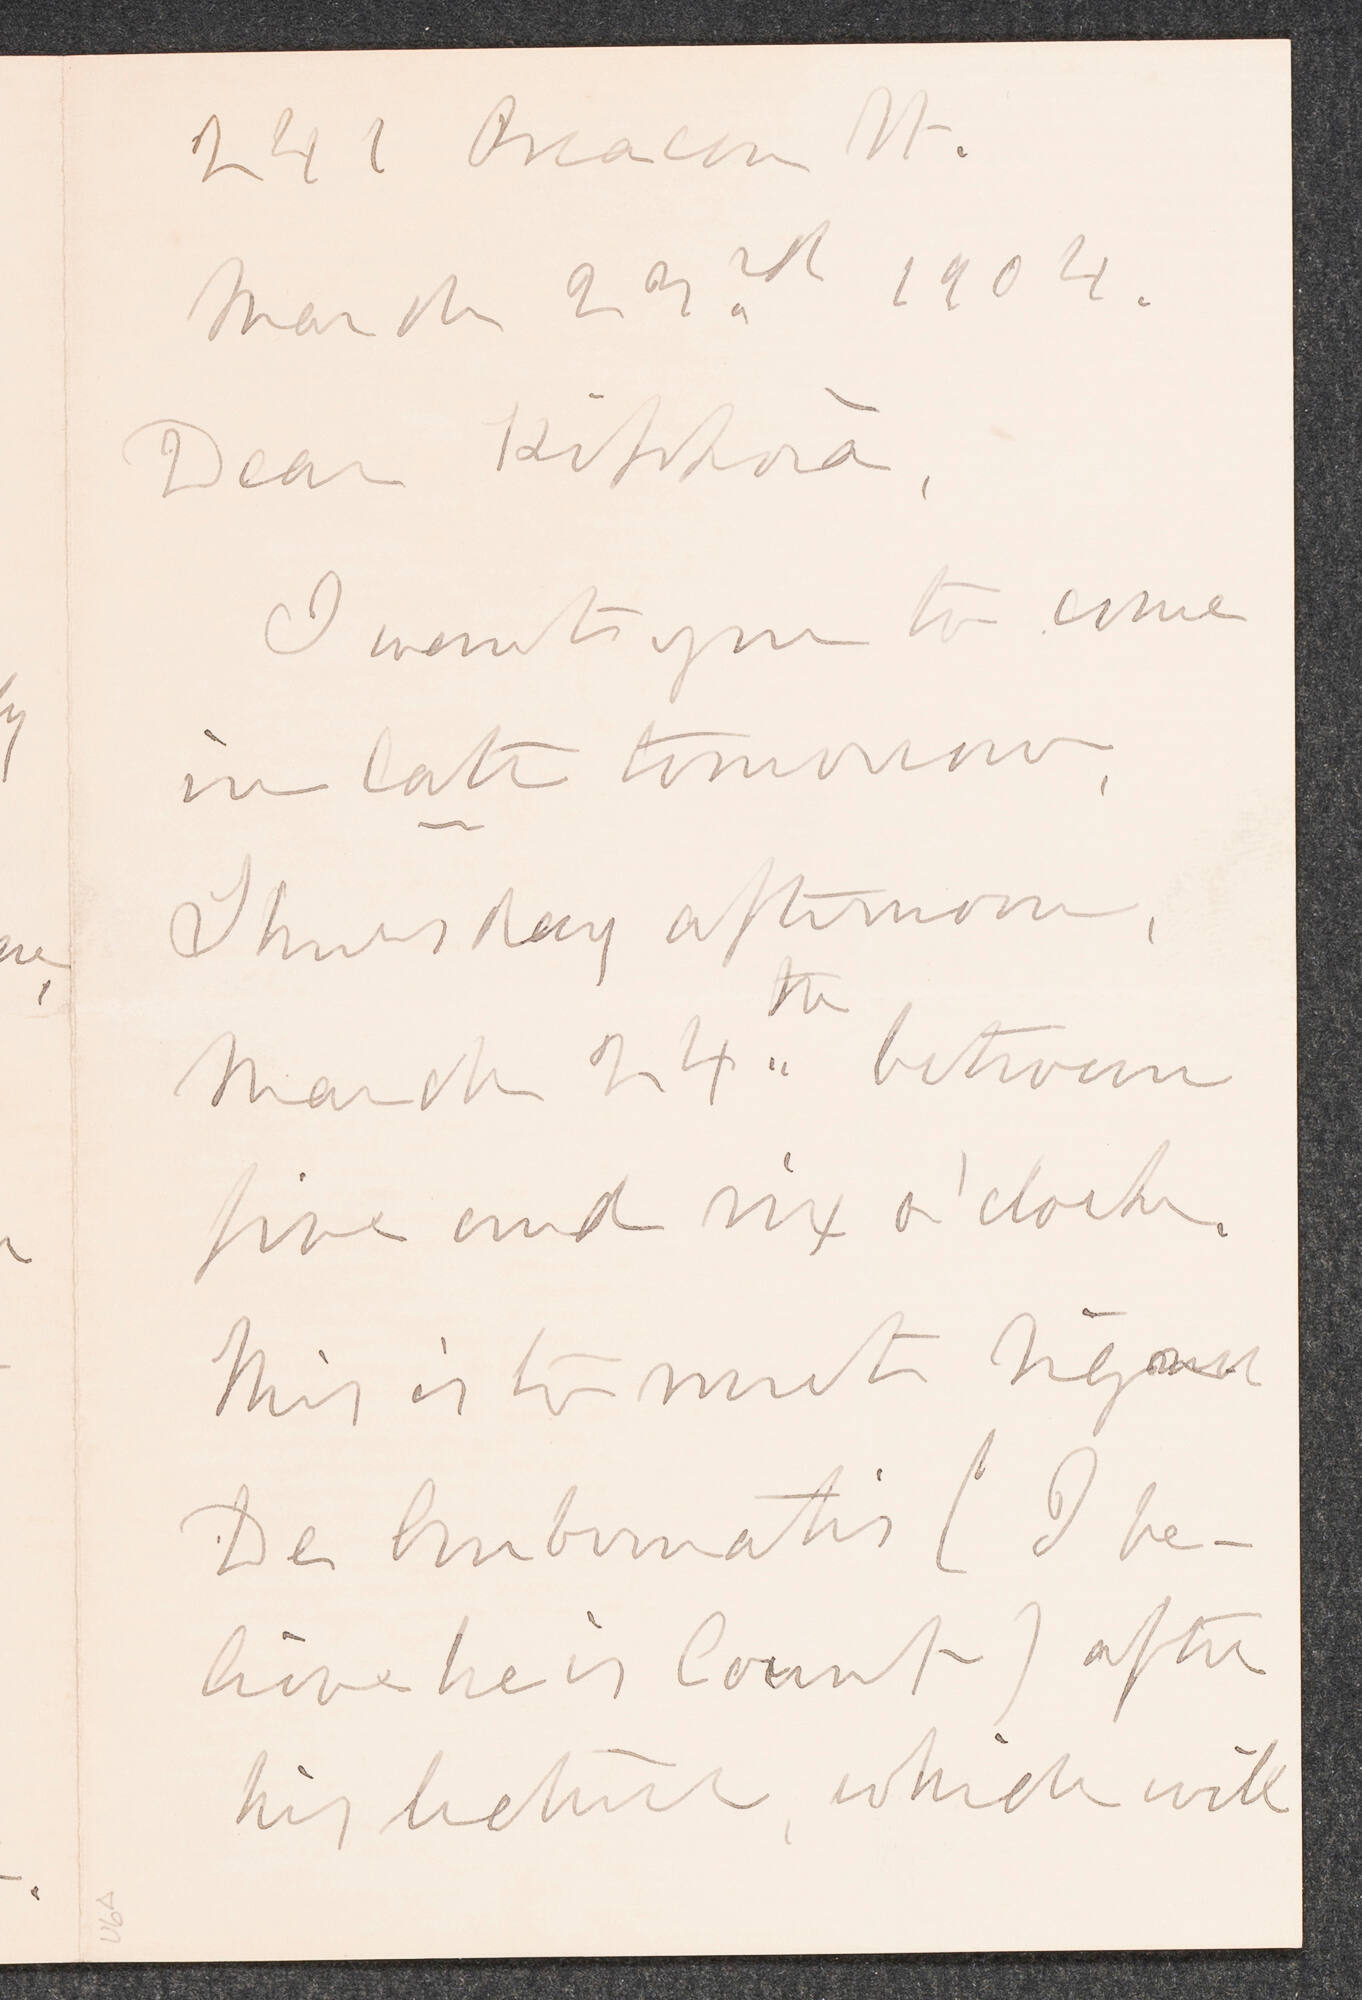 241 Beacon St.
March 23rd 1904.
Dear
I want you to come
in late tomorrow,
Thursday afternoon,
March 24th between
five and six o'clock.
This is to meet Signor
De Gubernatis (I be-
lieve he is Count) after
his lecture, which will